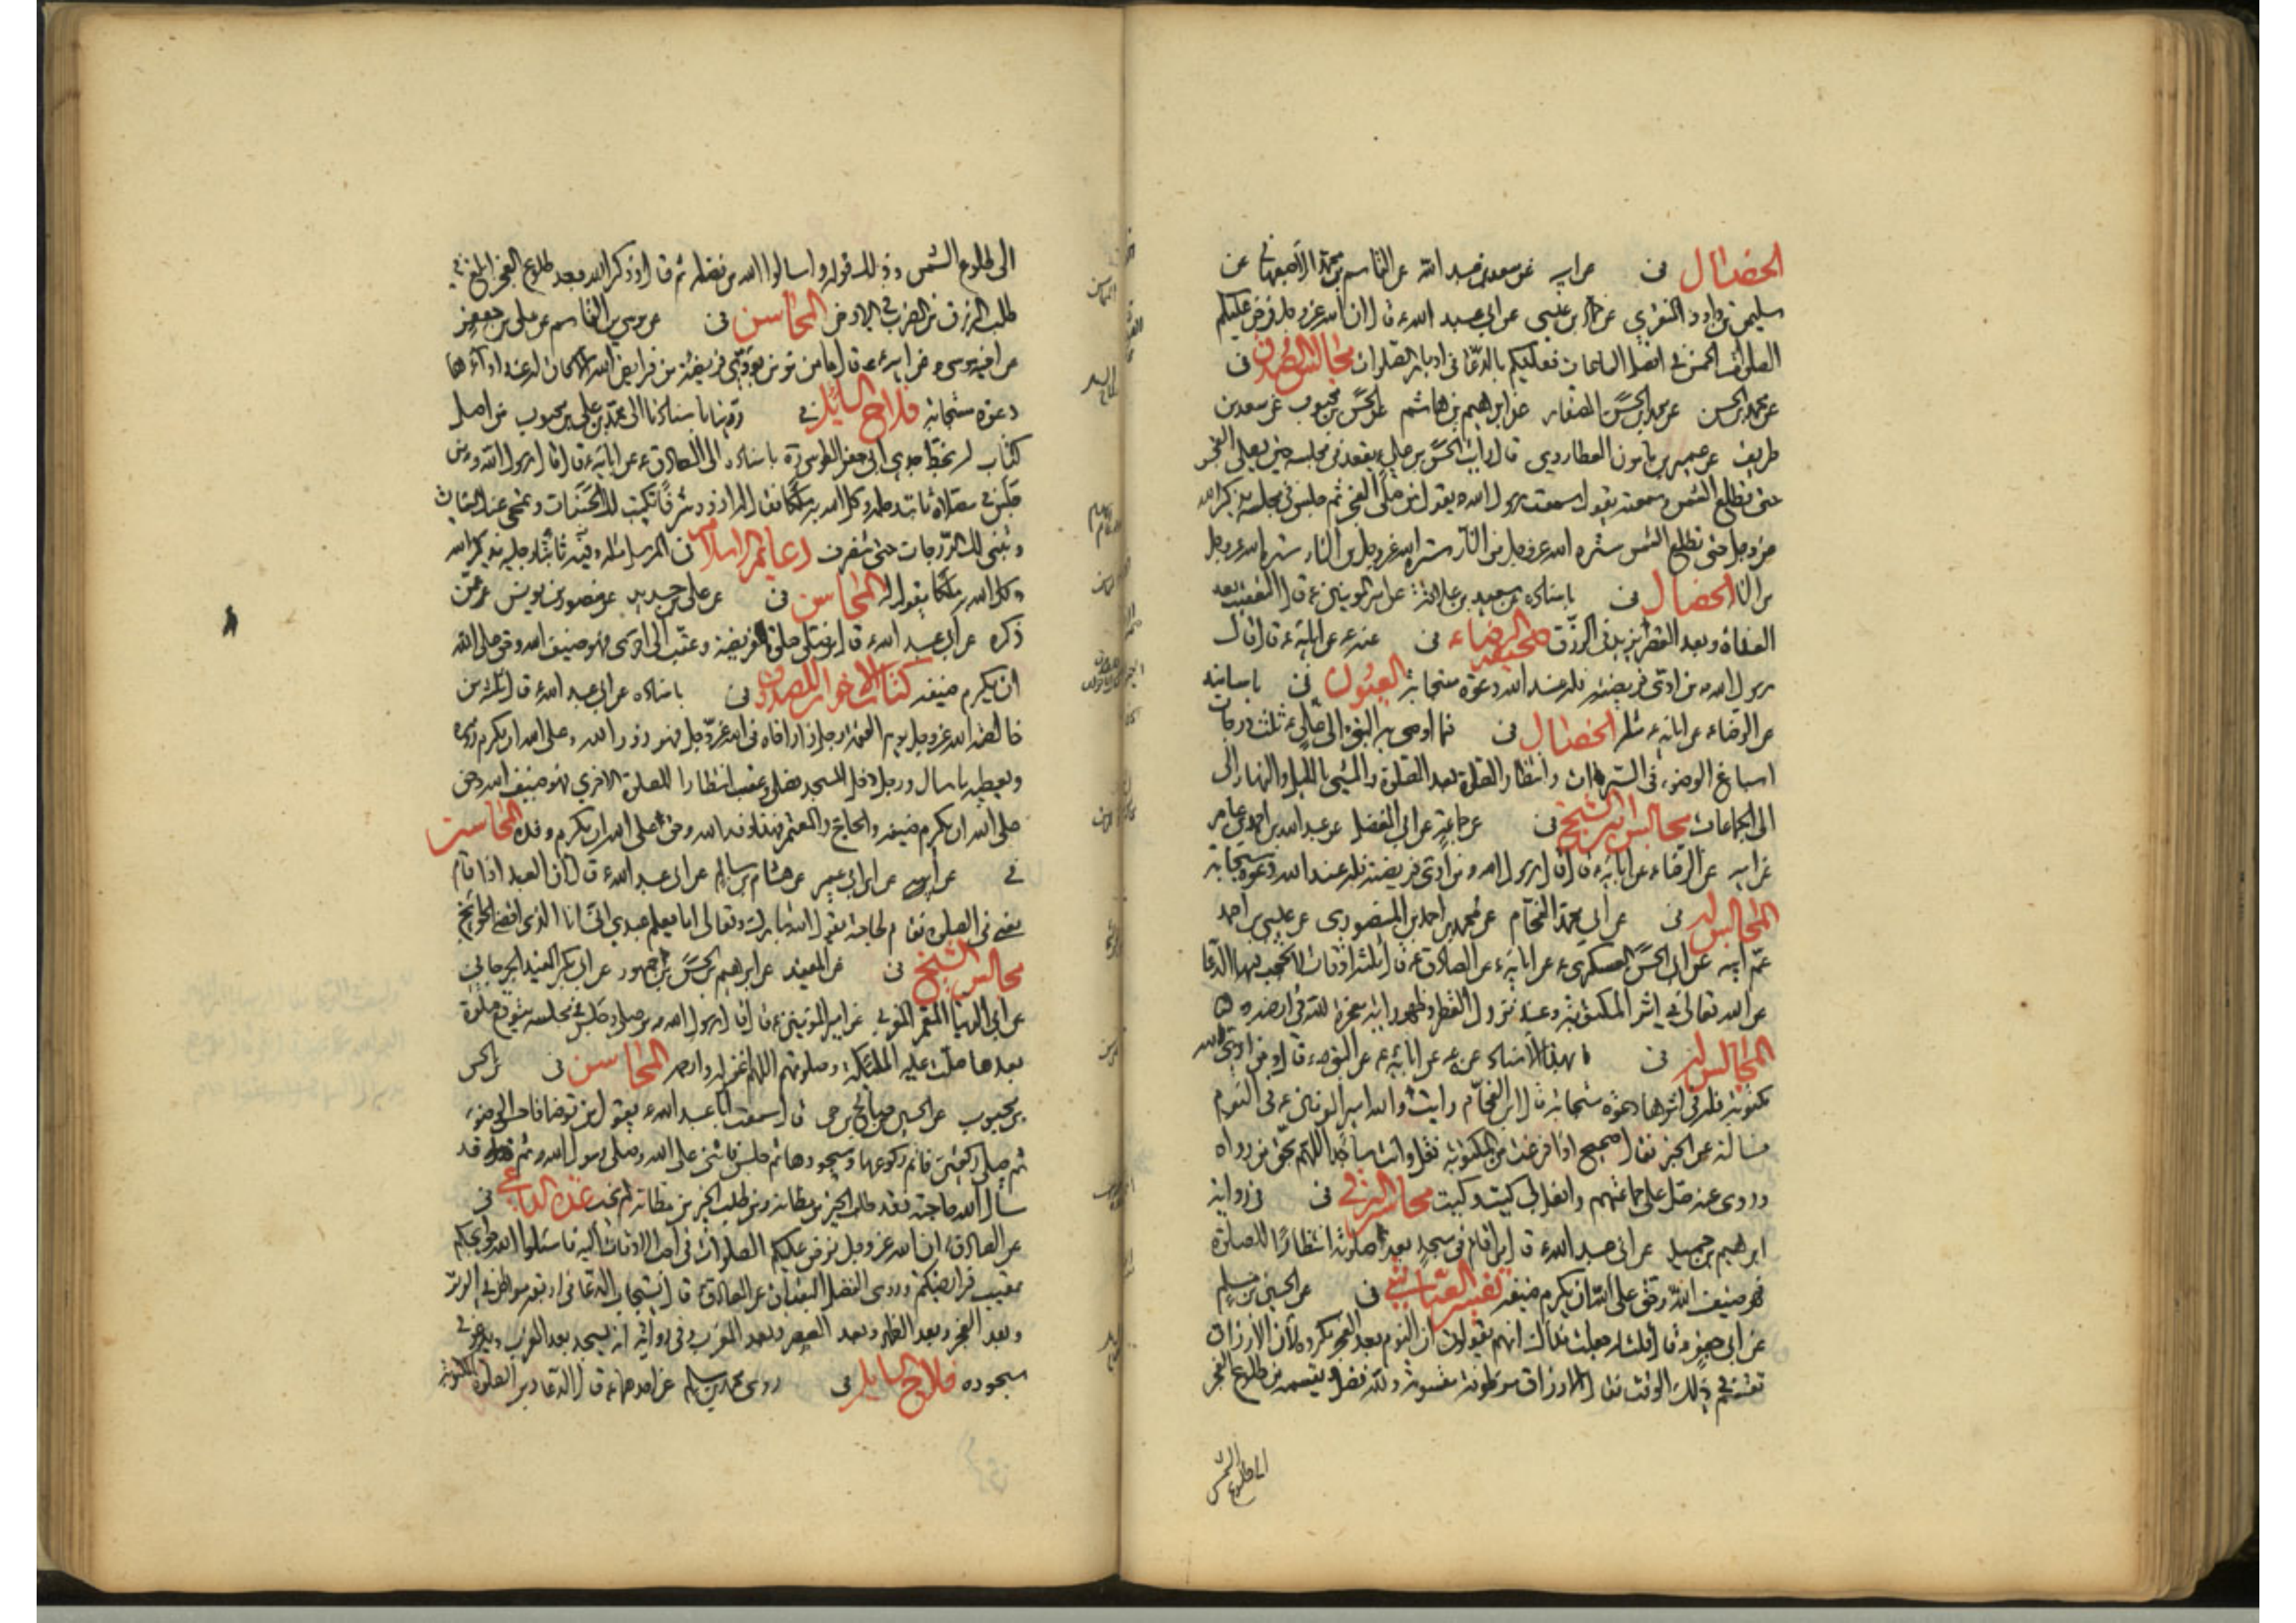 الخصال في عن ابيه عن سعد بن عبد الله عن القاسم بن محمد الاصبهاني عن
سليمن بن داود المنقري عن حماد بن عيسى عن ابي عبد الله ع قال ان الله عز وجل فرض عليكم
الصلوات الخمس في افضل الساعات فعليكم بالدعاء في ادبار الصلوات مجالس الصدوق في
عن محمد بن الحسن عن محمد بن الحسن الصفار عن ابراهيم بن هاشم عن الحسن بن محبوب عن سعد بن
طريف عن عمير بن مامون العطاردي قال رايت الحسن بن علي ع يقعد في مجلسه حين يصلي الفجر
حتى تطلع الشمس وسمعته يقول سمعت رسول الله ص يقول من صلى الفجر ثم جلس في مجلسه يذكر الله
عز وجل حتى تطلع الشمس ستره الله عز وجل من النار ستره الله عز وجل من النار ستره الله عز وجل
من النار الخصال في باسناده عن سعيد بن علاقة عن امير المومنين ع قال التعقيب بعد
الغداة وبعد العصر يزيد في الرزق صحيفة الرضا ع في عنه ع عن ابائه ع قال قال
رسول الله ص من ادى فريضة فله عند الله دعوة مستجابة العيون في باسانيده
عن الرضا ع عن ابائه ع مثله الخصال في فيما اوصى به النبي ص الى علي ع ثلث درجات
اسباغ الوضوء في السبرات وانتظار الصلوة بعد الصلوة والمشي بالليل والنهار الى
الى الجماعات مجالس ابن الشيخ في عن جماعة عن ابي المفضل عن عبد الله بن احمد بن عامر
عن ابيه عن الرضا ع عن ابائه ع قال قال رسول الله ص من ادى فريضة فله عند الله دعوة مستجابة
المجالس له في عن ابي محمد الفحام عن محمد بن احمد بن المنصوري عن عيسى بن احمد
عم ابيه عن ابي الحسن العسكري ع عن ابائه ع عن الصادق ع قال ثلثة اوقات لا تحجب فيها الدعا
عن الله تعالى في اثر المكتوبة وعند نزول القطر وظهور اية معجزة لله في ارضه
المجالس له في بهذا الاسناد عنه ع عن ابائه ع عن النبي ص قال من ادى لله
مكتوبة فله في اثرها دعوة مستجابة قال ابن الفحام رايت والله امير المومنين ع في النوم
فسالته عن الخبر فقال صحيح اذا فرغت من المكتوبة فقل وانت ساجد اللهم بحق من رواه
وروى عنه صل على جماعتهم وافعل بي كيت وكيت محاسن البرقي في في رواية
ابرهيم بن جميل عن ابي عبد الله ع قال من اقام في مسجد بعد صلوته انتظارا للصلوة
فهو ضيف الله وحق على الله ان يكرم ضيفه تفسير العياشي في عن الحسين بن مسلم
عن ابي جعفر ع قال قلت له جعلت فداك انهم يقولون ان النوم بعد الفجر مكروه لان الارزاق
تقسم في ذلك الوقت فقال الارزاق موظوفة مقسومة ولله فضل يقسمه من طلوع الفجر
الى طلوع الشمس
الى طلوع الشمس وذلك قوله واسالوا الله من فضله ثم قال وذكر الله بعد طلوع الفجر ابلغ في
طلب الرزق من الضرب في الارض المحاسن في عن موسى بن القاسم عن علي بن جعفر
عن اخيه موسى عن ابيه ع قال ما من مومن يودي فريضة من فرايض الله الا كان له عند ادائها
دعوة مستجابة فلاح السائل في روينا باسنادنا الى محمد بن علي بن محبوب من اصل
كتاب له بخط جدي ابي جعفر الطوسي ره باسناده الى الصادق ع عن ابائه ع قال قال رسول الله ص من
جلس في مصلاه ثانيا رجله وكل الله به ملكا فقال له ازدد شرفا تكتب لك الحسنات وتمحى عنك السيئات
وتبنى لك الدرجات حتى تنصرف دعايم الاسلام في المرسل مثله وفيه ثانيا رجليه يذكر الله
وكل الله به ملكا يقول له المحاسن في عن علي بن حديد عن منصور بن يونس عمن
ذكره عن ابي عبد الله ع قال من صلى صلوة فريضة وعقب الى اخرى فهو ضيف الله وحق على الله
ان يكرم ضيفه كتاب الاخوان للصدوق في باسناده عن ابي عبد الله ع قال ثلثة من
خالصة الله عز وجل يوم القيمة رجل زار اخاه في الله عز وجل فهو زور الله وعلى الله ان يكرم زوره
ويعطيه ما سال ورجل دخل المسجد فصلى وعقب انتظارا للصلوة الاخرى فهو ضيف الله وحق
على الله ان يكرم ضيفه والحاج والمعتمر فهذا وفد الله وحق على الله ان يكرم وفده المحاسن
في عن ابيه عن ابن ابي عمير عن هشام بن سالم عن ابي عبد الله ع قال ان العبد اذا قام
يعني في الصلوة فقام لحاجته يقول الله تبارك وتعالى اما يعلم عبدي اني انا الذي اقضي الحوائج
مجالس الشيخ في عن المفيد عن ابرهيم بن الحسن بن جمهور عن ابي بكر المفيد الجرجاني
عن ابي الدنيا المعمر المغربي عن امير المومنين ع قال قال رسول الله ص من صلى وجلس في مجلسه يتوقع صلوة
بعدها صلت عليه الملئكة وصلوتهم اللهم اغفر له وارحمه المحاسن في عن الحسن
بن محبوب عن الحسن بن صالح بن حي قال سمعت ابا عبد الله ع يقول من توضا فاحسن الوضوء
ثم صلى ركعتين فاتم ركوعها وسجودها ثم جلس فاثنى على الله وصلى على رسول الله ص ثم
سال الله حاجته فقد طلب الخير من مظانه ومن طلب الخير من مظانه لم يخب عدة الداعي في
عن الصادق ع ان الله عز وجل فرض عليكم الصلوات في احب الاوقات اليه فاسئلوا الله حوائجكم
عقيب فرايضكم وروى الفضل البقباق عن الصادق ع قال يستجاب الدعا في اربعة مواطن في الوتر
وبعد الفجر وبعد الظهر وبعد المغرب وفي رواية انه يسجد بعد المغرب ويدعو في
سجوده فلاح السايل في روى محمد بن مسلم عن احدهما ع قال الدعا دبر الصلوة المكتوبة